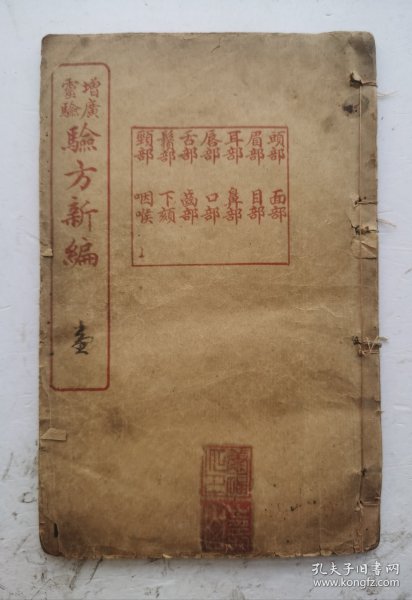 增廣
靈驗
驗方新編
壹
頭部 面部
眉部 目部
耳部 鼻部
唇部 口部
舌部 齒部
鬚部 下頦
頸部 咽喉
孔夫子旧书网
www.kongfz.com